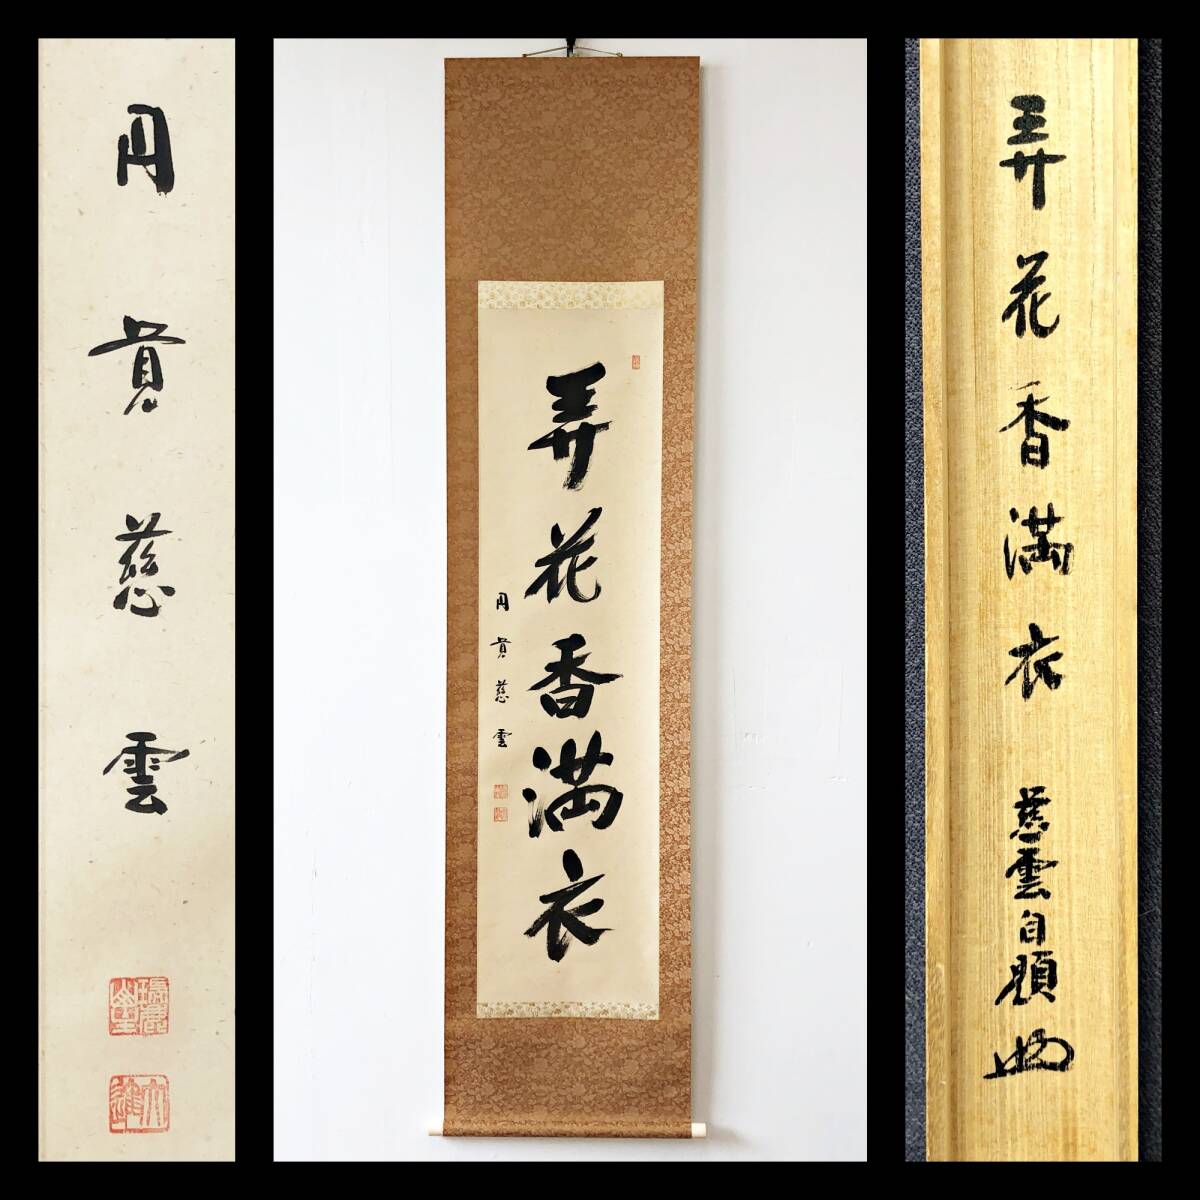 円貫慈雲
弄花香満衣
円貫慈雲
弄花香満衣
慈雲自題